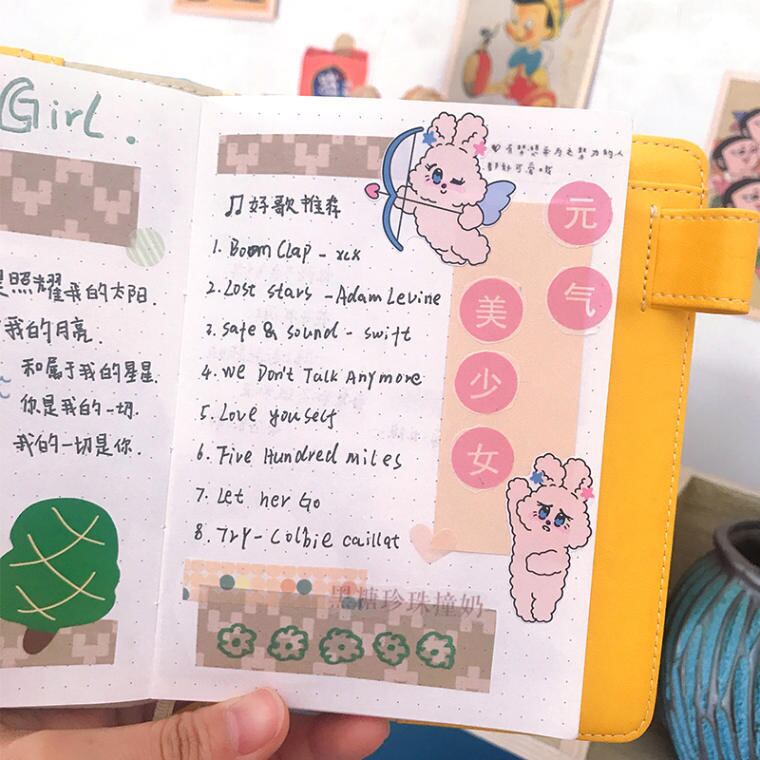 Girl.
照耀我的太阳.
我的月亮
和属于我的星星
你是我的一切.
我的一切是你.
好歌推荐
1. Boom Clap - xcx
2. Lost stars - Adam Levine
3. Safe & sound - swift
4. We Don't Talk Anymore
5. Love youself
6. Five Hundred miles
7. Let her Go
8. Try - Colbie caillat
有梦想并为之努力的人
都好可爱哦
元
气
美
少
女
黑糖珍珠撞奶